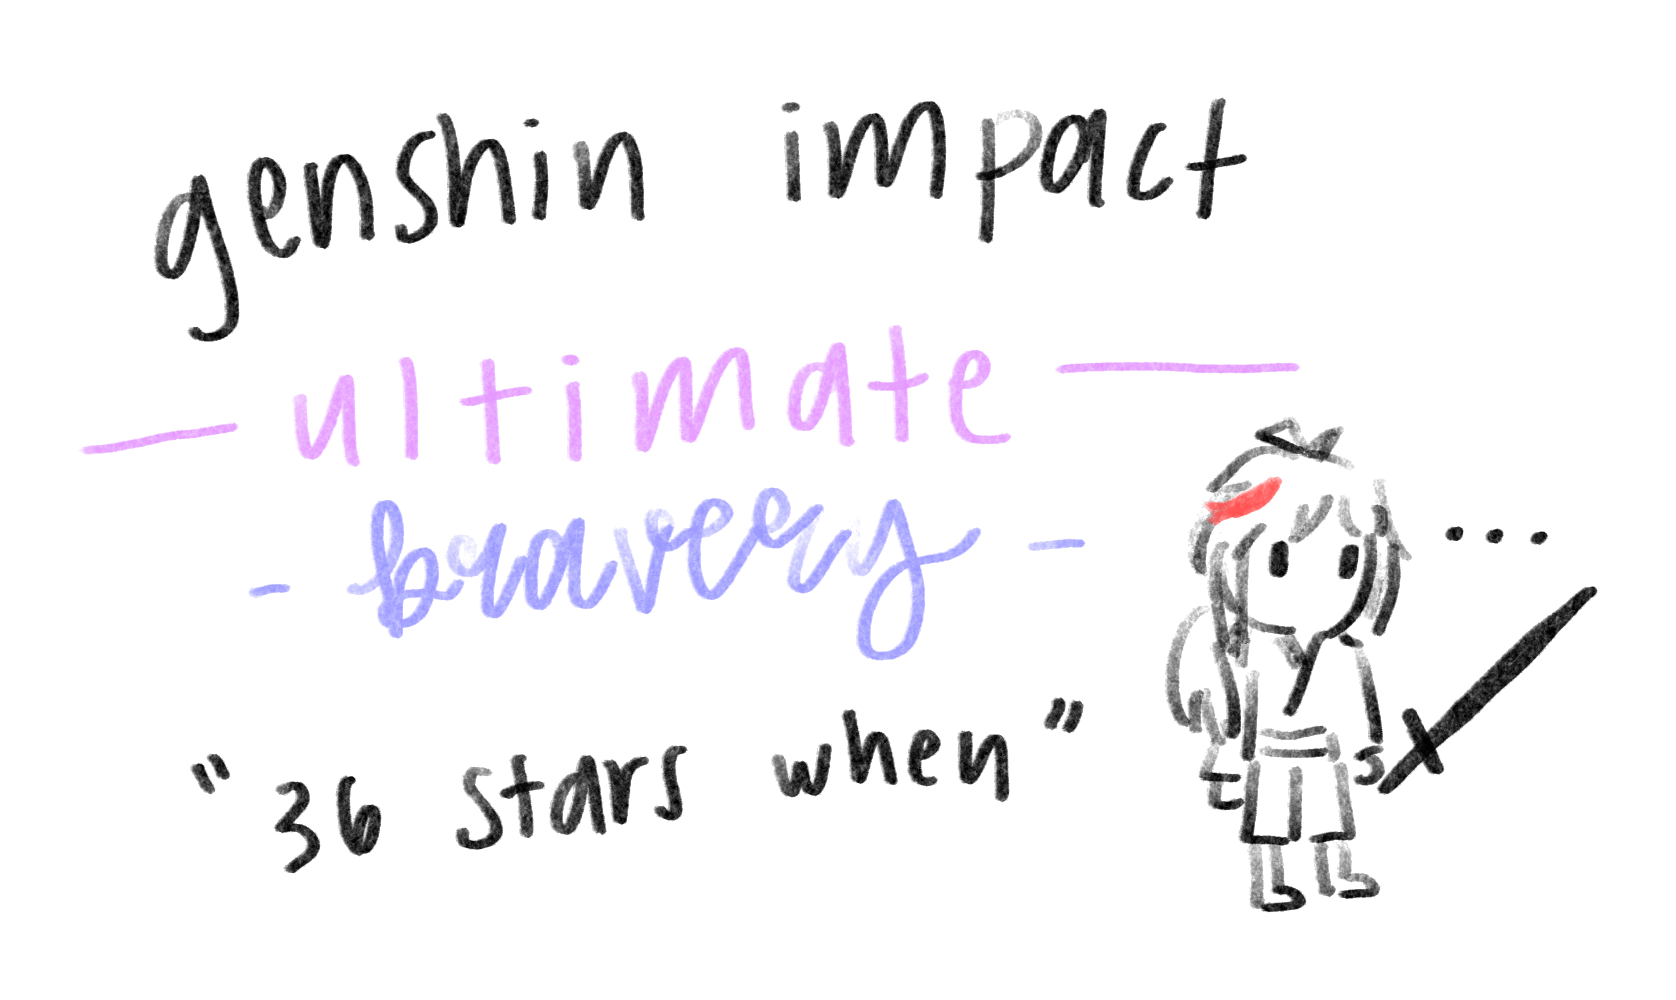 genshin impact
— ultimate —
- bravery -
"36 stars when"
...